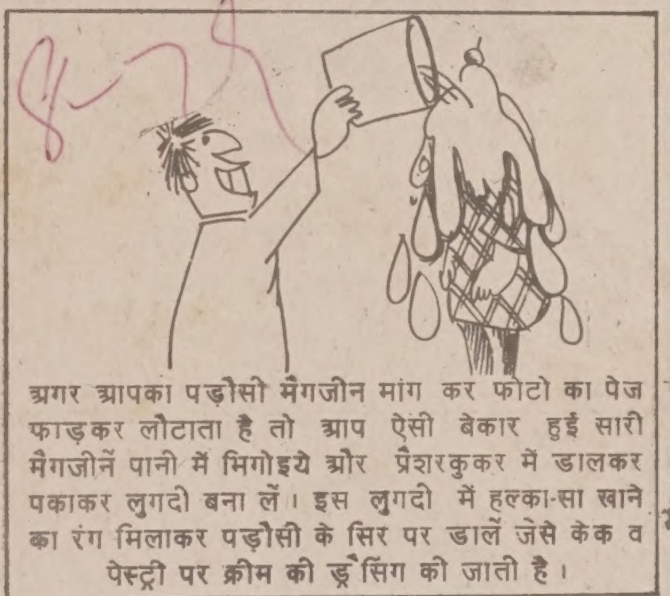 8-78
अगर आपका पड़ौसी मैगजीन मांग कर फोटो का पेज
फाड़कर लौटाता है तो आप ऐसी बेकार हुई सारी
मैगजीनें पानी में भिगोइये और प्रैशरकुकर में डालकर
पकाकर लुगदी बना लें। इस लुगदी में हल्का-सा खाने
का रंग मिलाकर पड़ौसी के सिर पर डालें जैसे केक व
पेस्ट्री पर क्रीम की ड्रैसिंग की जाती है।